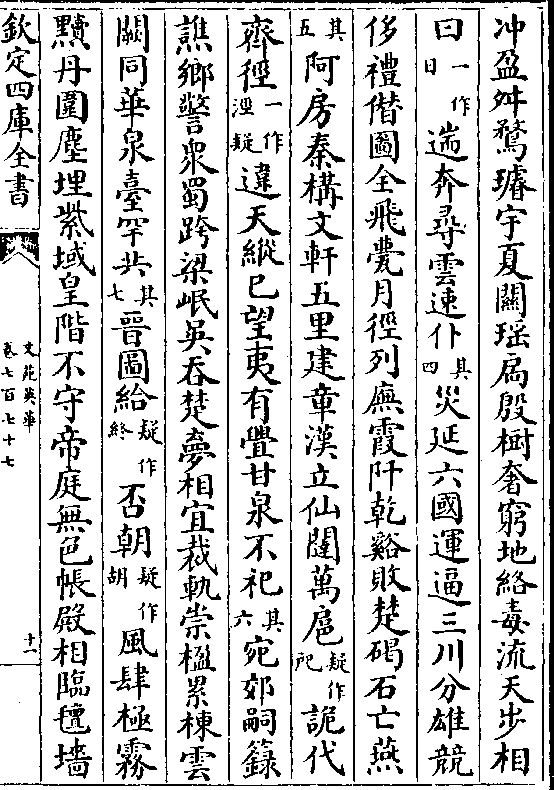 冲盈舛騖璿宇夏闢瑶扄殷榭奢窮地絡毒流天步相
曰一作日遄奔尋雲速仆其四災延六國運逼三川分雄競
侈禮僣圖全飛甍月徑列廡霞阡乾谿敗楚碣石亡燕
其五阿房秦構文軒五里建章漢立仙闥萬扈疑作戺詭代
齊徑一作涇疑違天縱巳望夷有舋甘泉不祀其六宛郊嗣籙
譙鄉警衆蜀跨梁岷吳吞楚夢相宜裁軌崇楹累棟雲
闕同華泉臺罕共其七晉圖給疑作終否朝疑作胡風肆極霧
黷丹圍塵埋紫域皇階不守帝庭無色帳殿相臨氊墻
欽定四庫全書
文苑英華
卷七百七十七
十一